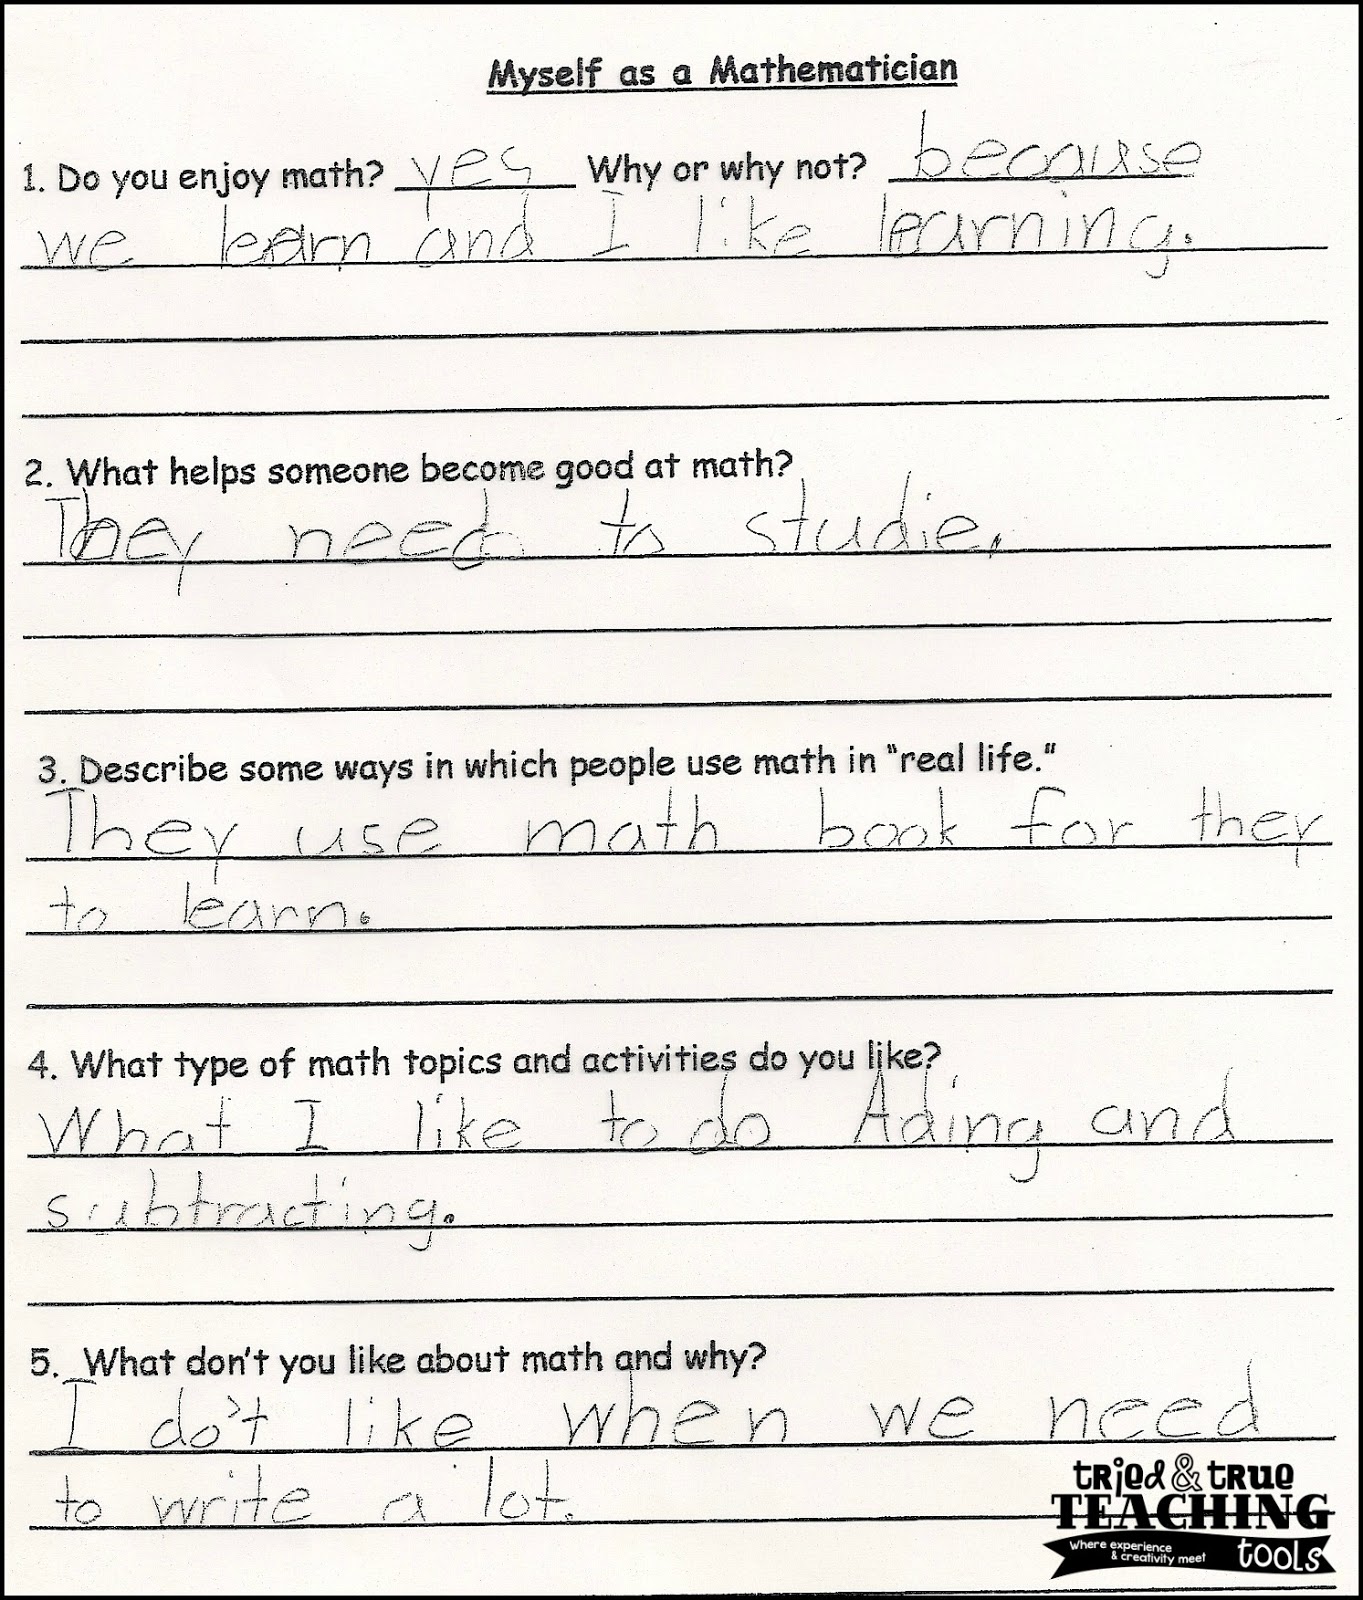 Myself as a Mathematician
1. Do you enjoy math? yes Why or why not? because
we learn and I like learning.
2. What helps someone become good at math?
They need to studie.
3. Describe some ways in which people use math in "real life."
They use math book for they
to learn.
4. What type of math topics and activities do you like?
What I like to do Ading and
subtracting.
5. What don't you like about math and why?
I do't like when we need
to write a lot.
tried & true
TEACHING
Where experience
& creativity meet
tools